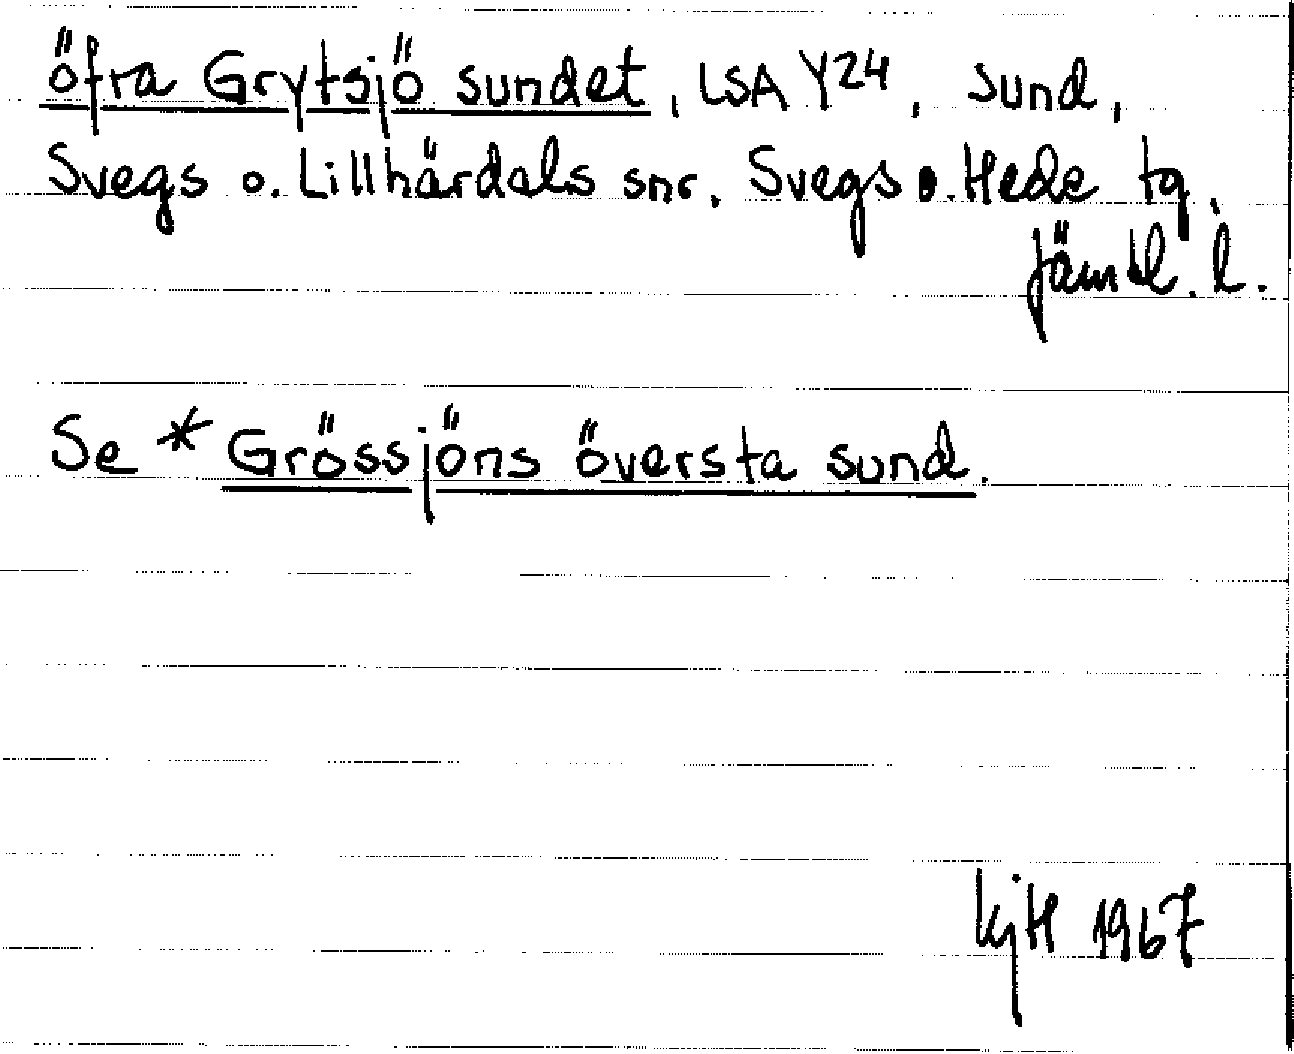 öfra Grytsjö sundet, LSA Y24, sund,
Svegs o. Lillhärdals snr. Svegs o. Hede tg.
Jämtl. l.
Se * Grössjöns översta sund.
KjH 1967